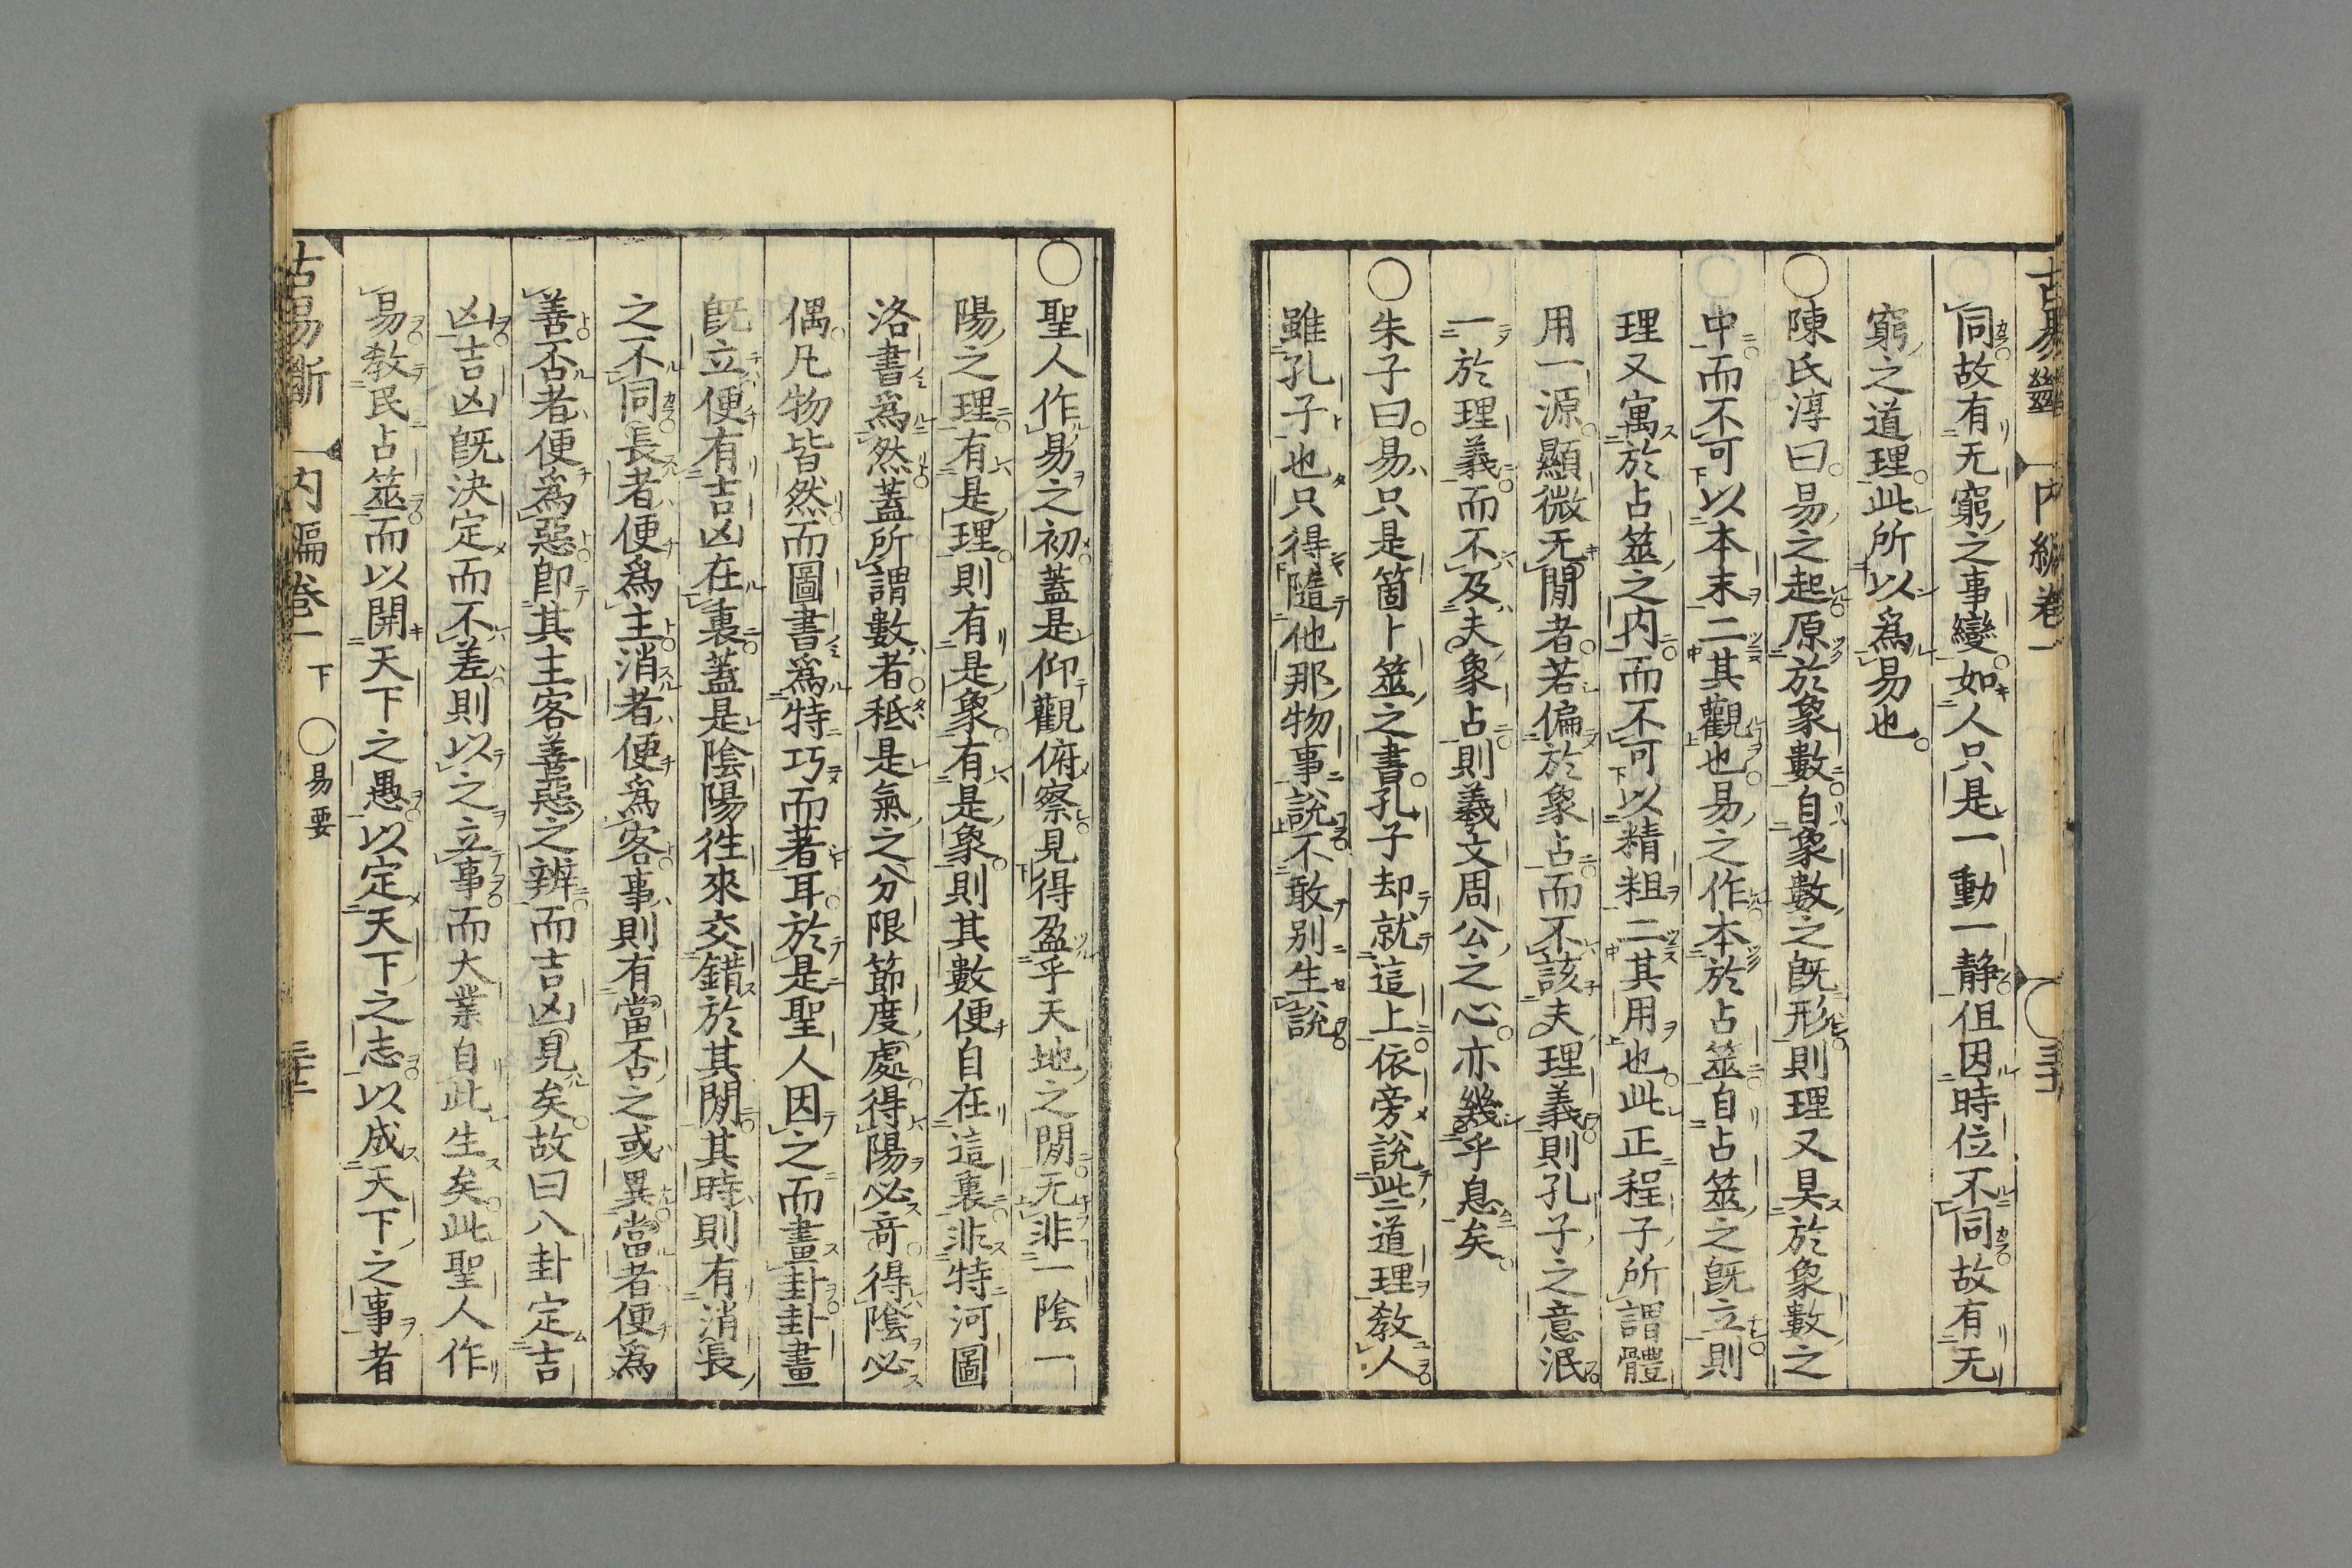 古易斷 内編卷一 三十
同故有无窮之事變如人只是一動一静但因時位不同故有无
窮之道理此所以爲易也
○陳氏淳曰易之起原於象數自象數之旣形則理又具於象數之
中而不可以本末二其觀也易之作本於占筮自占筮之旣立則
理又寓於占筮之内而不可以精粗二其用也此正程子所謂體
用一源顯微无閒者若偏於象占而不該夫理義則孔子之意泯
一於理義而不及夫象占則羲文周公之心亦幾乎息矣
○朱子曰易只是箇卜筮之書孔子却就這上依旁說些道理敎人
雖孔子也只得隨他那物事說不敢別生說
○聖人作易之初蓋是仰觀俯察見得盈乎天地之閒无非一陰一
陽之理有是理則有是象有是象則其數便自在這裏非特河圖
洛書爲然蓋所謂數者秪是氣之分限節度處得陽必竒得陰必
偶凡物皆然而圖書爲特巧而著耳於是聖人因之而畫卦卦畫
旣立便有吉凶在裏蓋是陰陽徃來交錯於其閒其時則有消長
之不同長者便爲主消者便爲客事則有當否之或異當者便爲
善否者便爲惡卽其主客善惡之辨而吉凶見矣故曰八卦定吉
凶吉凶旣決定而不差則以之立事而大業自此生矣此聖人作
易敎民占筮而以開天下之愚以定天下之志以成天下之事者
古易斷 内編卷一 下 ○易要 三十一